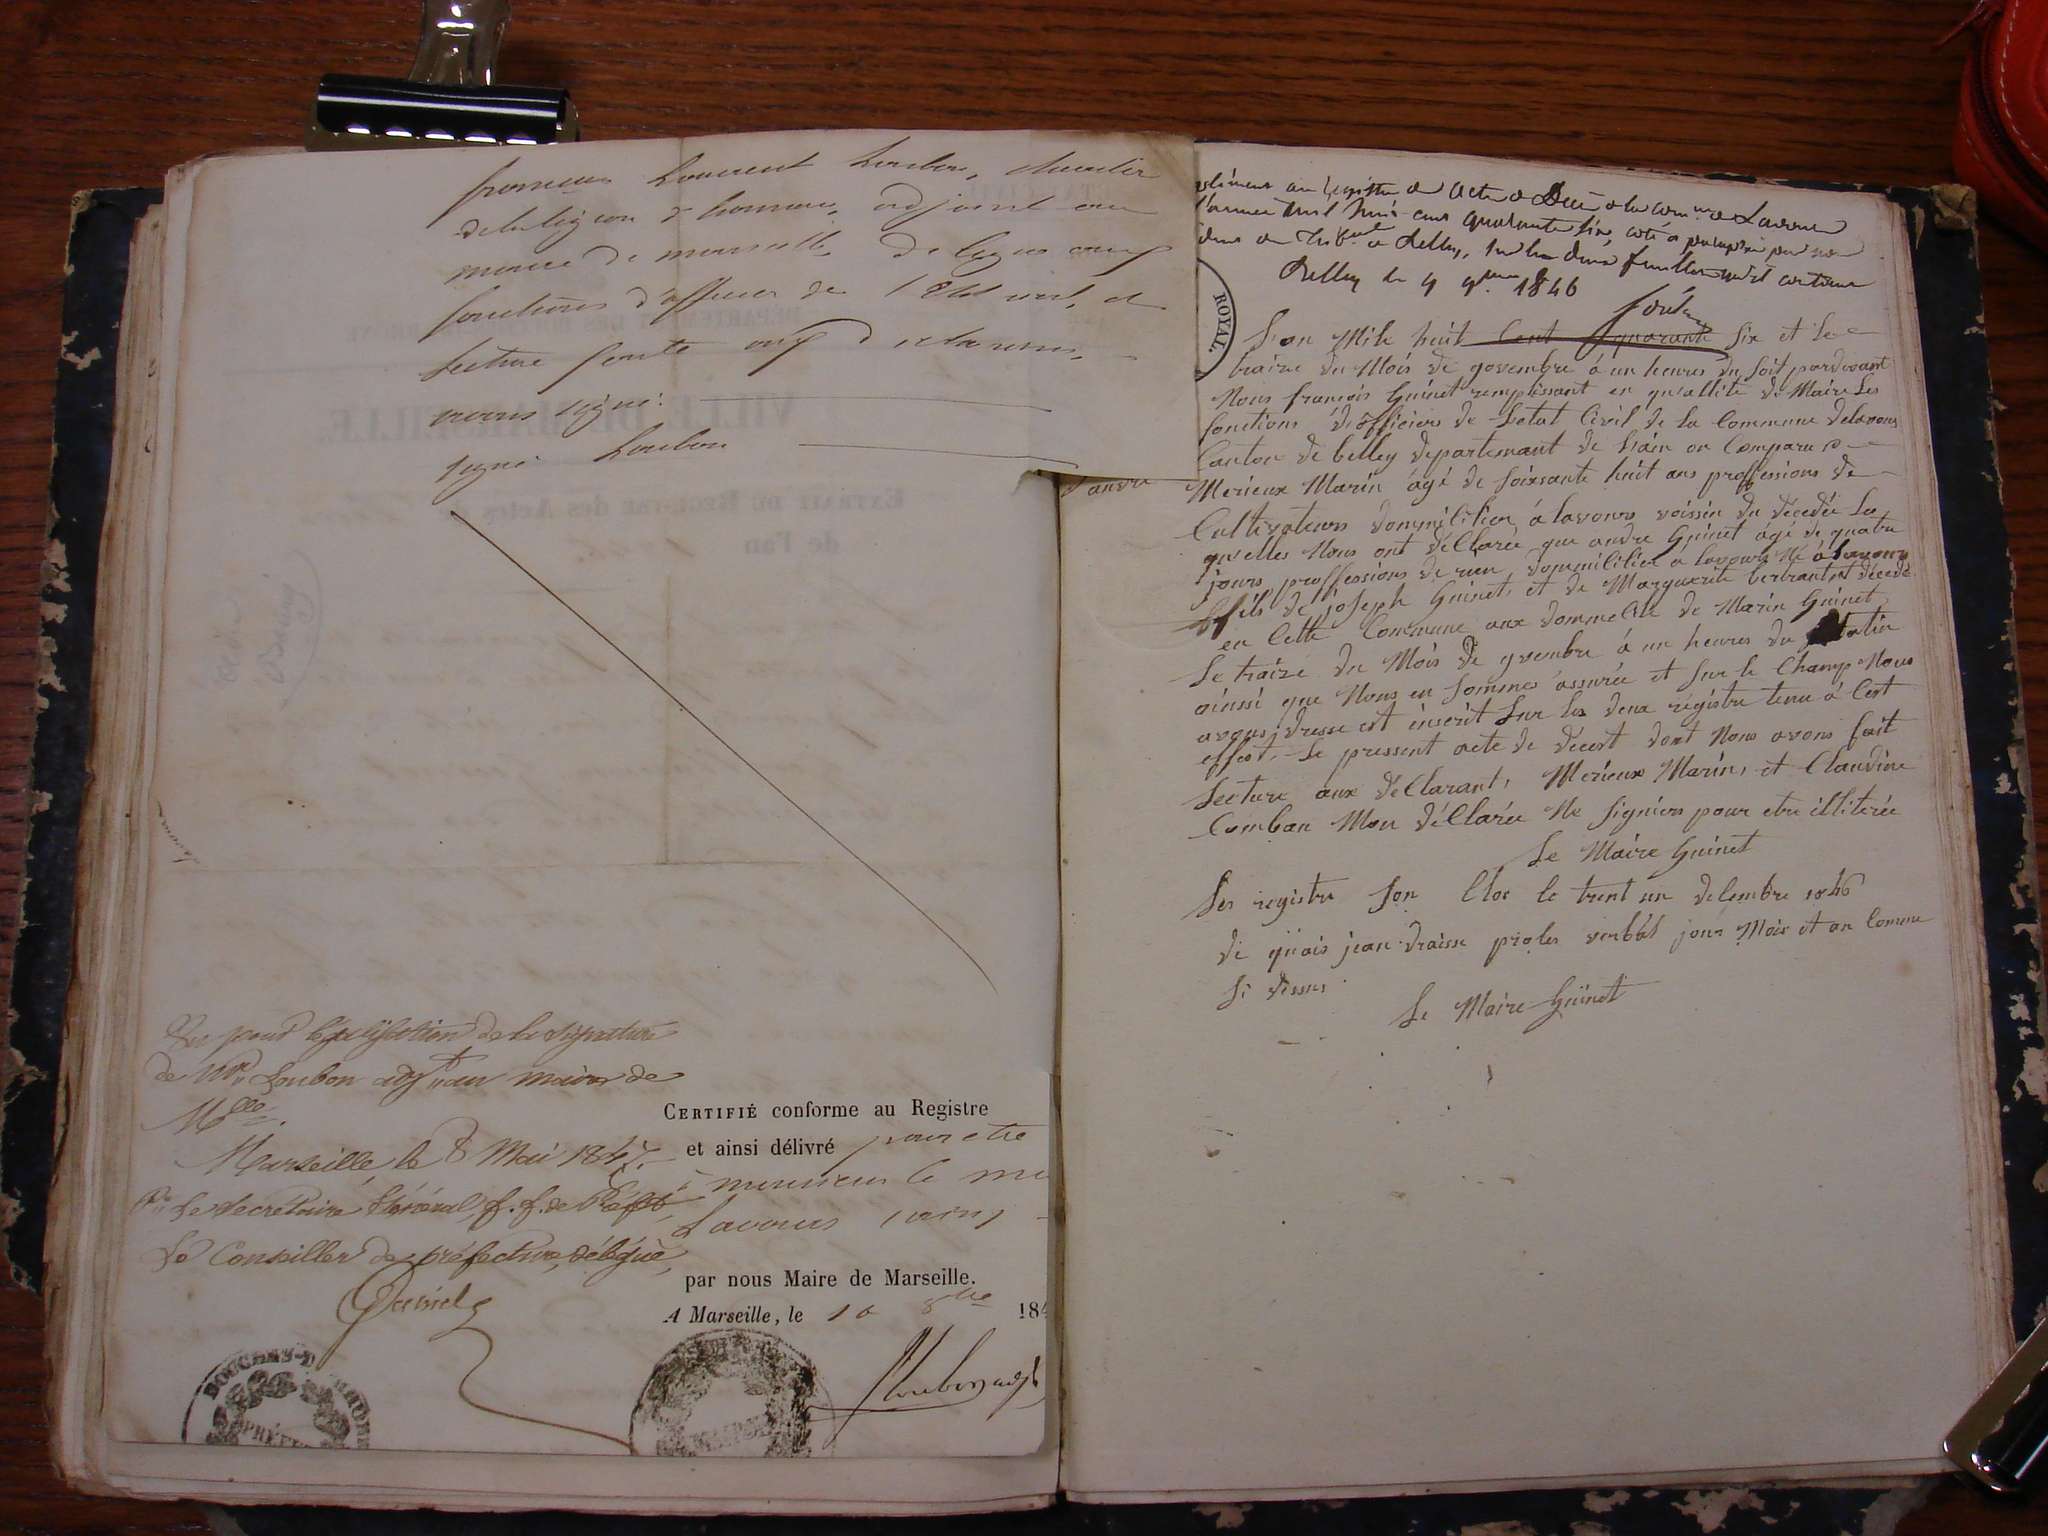 Laurent Loubon, chevalier
de la légion d'honneur, adjoint au
maire de marseille, délégué aux
fonctions d'officier de l'Etat civil, et
lecture faite aux déclarans,
avons signé.
signé Loubon
Vu pour légalisation de la signature
de Mr. Loubon adjt. au maire de
Mlle.
Marseille, le 8 Mai 1847.
Le Secrétaire Général, f. f. de Préfet,
Le Conseiller de préfecture, délégué,
CERTIFIÉ conforme au Registre
et ainsi délivré pour etre
à monsieur le
Lavours (ain)
par nous Maire de Marseille.
A Marseille, le 10 8bre 184
Loubon adjt
BOUCHES-D RHONE
PRÉFE
au registre de acte de Décès de la comne de Lavours
l'année mil huit cent quarante six, coté et paraphé par nous
du Tribal de Belley, sur les deux feuilles qu'il contient
Belley le 9 9bre 1846
ROYAL.
L'an Mile huit Cent quarante Six et le
traize du Mois de 9ovembre à un heures du Soit pardevant
Nous françois Guinet remplissant en quallité de Maire Les
fonctions d'officiers de Letat Civil de la Commune delavours
Canton de belley departemant de Lain on Comparu
Merieux Marin âgé de Soixsante huit ans proffessions de
Cultivateurs dommililier à lavours voissin du décedée Les
quelles Nous ont déClarée que andre Guinet âgé de quatre
jours proffessions de rien dommililier à lavours Né à Lavours
fils de joseph Guinet, et de Marguerite bertrant et décedé
en Cette Commune aux dommelile de Marin Guinet
Le traize du Mois de 9vembre à un heures du Matin
ainssi que Nous en Sommes assurée et Sur le Champ Nous
avons dresse est inscrit Sur les deux régistre tenu à Cest
effest, Le pressent acte de décest dont Nous avons fait
Lecture aux déClarant, Merieux Marin, et Claudine
Comban Mon déClarée Ne Signiers pour etre illiterée
Le Maire Guinet
Les registre Son Clos le trent un delembre 1846
de quais jean draisse proles verbal jour Mois et an Comme
Si dessus
Le Maire Guinet